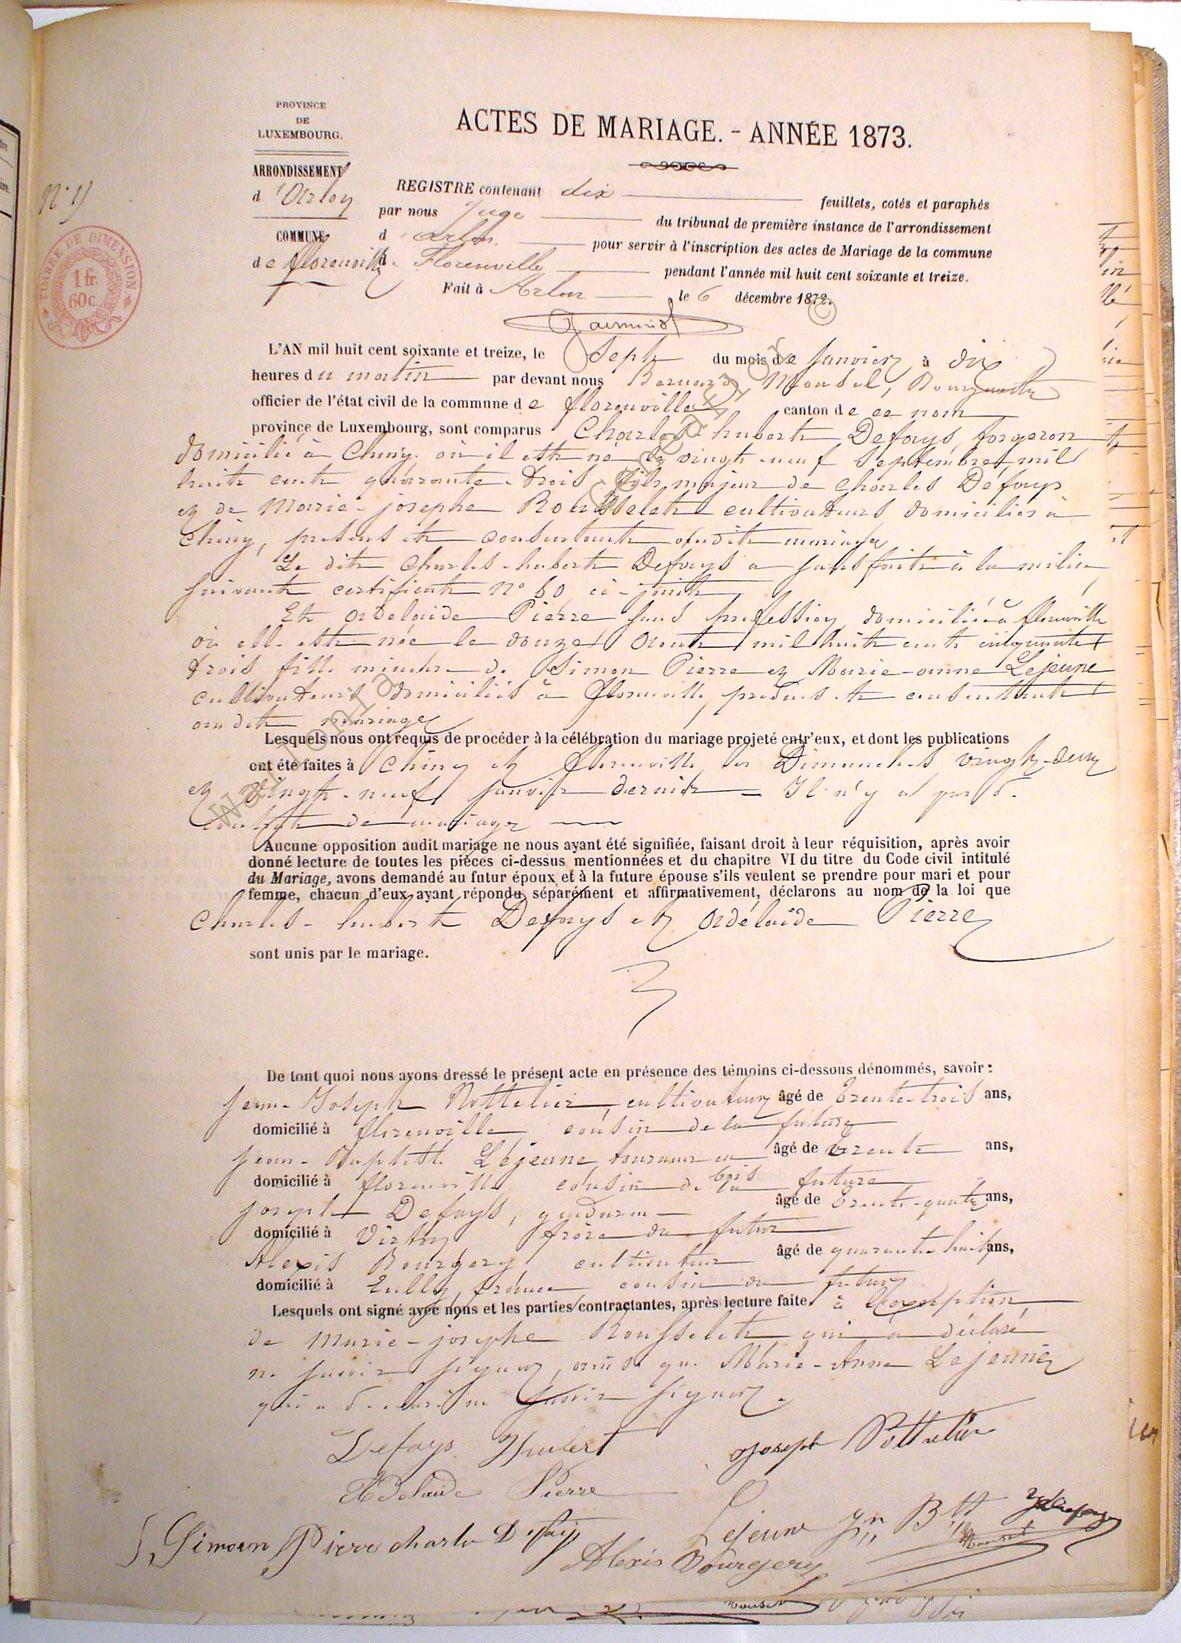 PROVINCE
DE
LUXEMBOURG.
ACTES DE MARIAGE. - ANNÉE 1873.
ARRONDISSEMENT
d'Arlon
COMMUNE
de florenville
TIMBRE DE DIMENSION
1 fr.
60 c.
REGISTRE contenant dix feuillets, cotés et paraphés
par nous Juge du tribunal de première instance de l'arrondissement
d' Arlon pour servir à l'inscription des actes de Mariage de la commune
d Florenville pendant l'année mil huit cent soixante et treize.
Fait à Arlon le 6 décembre 1872.
L'AN mil huit cent soixante et treize, le Sept du mois de Janvier à dix
heures du matin par devant nous Bernard Mousel, Bourgmestre
officier de l'état civil de la commune de florenville canton de ce nom
province de Luxembourg, sont comparus Charles hubert Defays forgeron
domicilié à Chiny où il est né le vingt-neuf Septembre mil
huit cent quarante-trois fils majeur de Charles Defays
et de Marie-josephe Rousselet cultivateurs domiciliés à
Chiny, présents et consentants audit mariage
Le dit Charles-hubert Defays a satisfait à la milice
suivant certificat N° 60 ci-joint
Et Adelaïde Pierre sans profession domiciliée à florenville
où elle est née le douze Août mil huit cent cinquante
trois fille mineure de Simon Pierre et Marie-anne Lejeune
cultivateurs domiciliés à florenville, présents et consentants
audit mariage
Lesquels nous ont requis de procéder à la célébration du mariage projeté entr'eux, et dont les publications
ont été faites à Chiny et florenville les Dimanches vingt-deux
et vingt-neuf janvier dernier = Il n'y a pas de
contrat de mariage
Aucune opposition audit mariage ne nous ayant été signifiée, faisant droit à leur réquisition, après avoir
donné lecture de toutes les pièces ci-dessus mentionnées et du chapitre VI du titre du Code civil intitulé
du Mariage, avons demandé au futur époux et à la future épouse s'ils veulent se prendre pour mari et pour
femme, chacun d'eux ayant répondu séparément et affirmativement, déclarons au nom de la loi que
Charles-hubert Defays et Adélaïde Pierre
sont unis par le mariage.
De tout quoi nous avons dressé le présent acte en présence des témoins ci-dessous dénommés, savoir :
Jean-Joseph Nottelier, cultivateur âgé de trente-trois ans,
domicilié à florenville cousin de la future
Jean-Baptiste Lejeune, tourneur en bois âgé de trente ans,
domicilié à florenville cousin de la future
Joseph Defays, gendarme âgé de trente-quatre ans,
domicilié à Virton frère du futur
Alexis Bourgery cultivateur âgé de quarante huit ans,
domicilié à france cousin du futur
Lesquels ont signé avec nous et les parties contractantes, après lecture faite à l'exception
de Marie-josephe Rousselet qui a déclaré
ne savoir signer, ainsi que Marie-Anne Lejeune
qui a déclaré ne savoir signer.
Defays Hubert
Joseph Nottelier
Adelaide Pierre
Simon Pierre
Charles Defays
Lejeune Jn Btt
Alexis Bourgery
Mousel